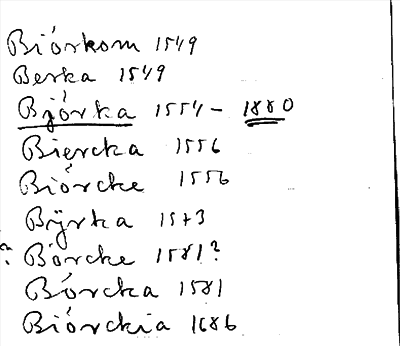 Biórkom 1549
Berka 1549
Bjórka 1554 - 1880
Biercka 1556
Biórcke 1556
Bÿrka 1573
? Bórcke 1581?
Bórcka 1581
Biórckia 1686